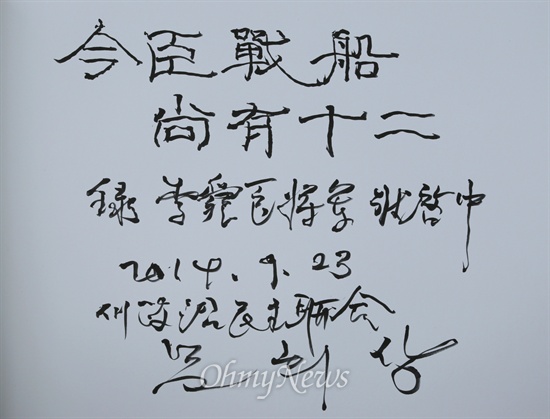 今臣戰船
尙有十二
錄 李舜臣將軍 狀啓中
2014. 9. 23
새政治民主聯合
문희상
OhmyNews